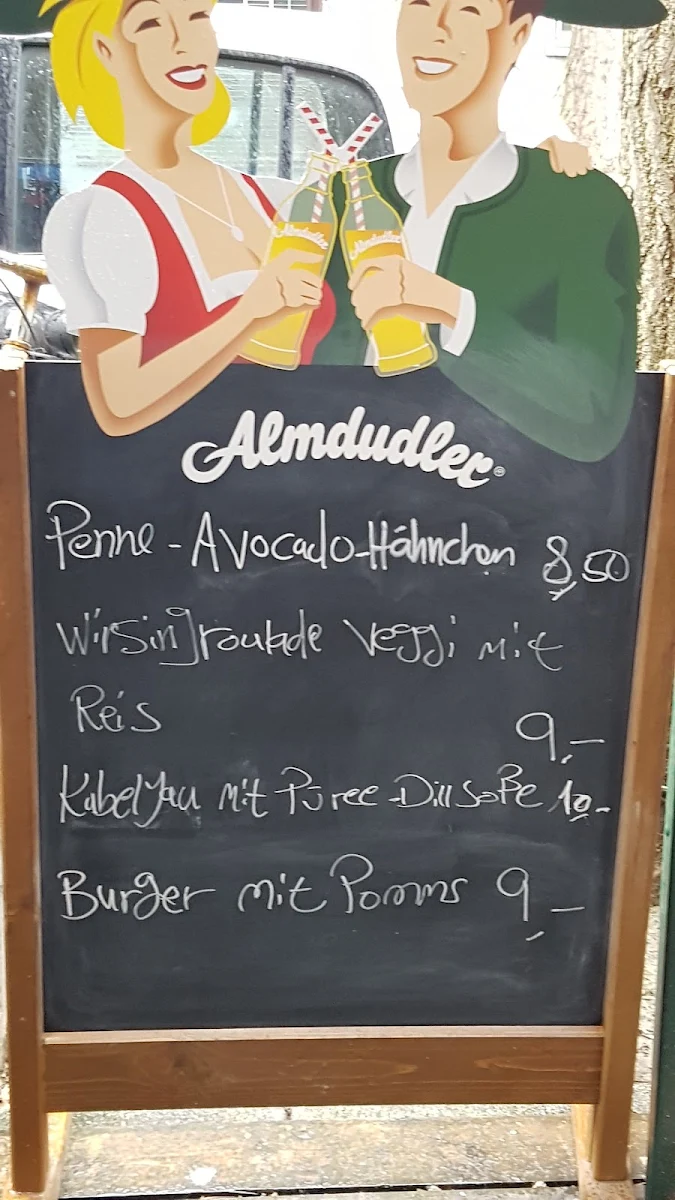 Almdudler
Almdudler
Almdudler®
Penne-Avocado-Hähnchen 8,50
Wirsingroulade Veggi mit
Reis
9,-
Kabeljau mit Püree-Dillsoße 10,-
Burger mit Pomms 9,-